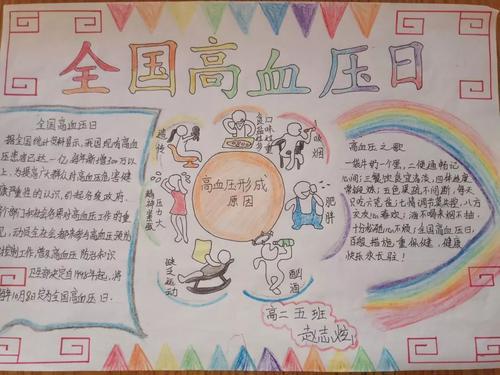 全国高血压日
全国高血压日
据全国统计资料显示,我国现有高血
压患者已达一亿,每年新增300万以
上,为提高广大群众对高血压危害健
康严重性的认识,引起各级政府、
各个部门和社会各界对高血压工作的重
视,动员全社会都来参与高血压预防
和控制工作,普及高血压防治知识
卫生部决定自1998年起,将
每年10月8日定为全国高血压日。
遗传
口味过重
食盐过多
吸烟
肥胖
酗酒
缺乏运动
压力大
精神紧张
高血压形成
原因
高血压之歌
一袋牛奶一个蛋,二便通畅记
心间;三餐饮食宜清淡,四体勤度
常锻炼;五色果蔬不间断,每天
只吃六克盐;七情调节莫木控,八方
交友心态好;酒不喝来烟不抽,
十分松驰心不烦;全国高血压日,
百般措施重保健,健康
快乐永长驻!
高二五班